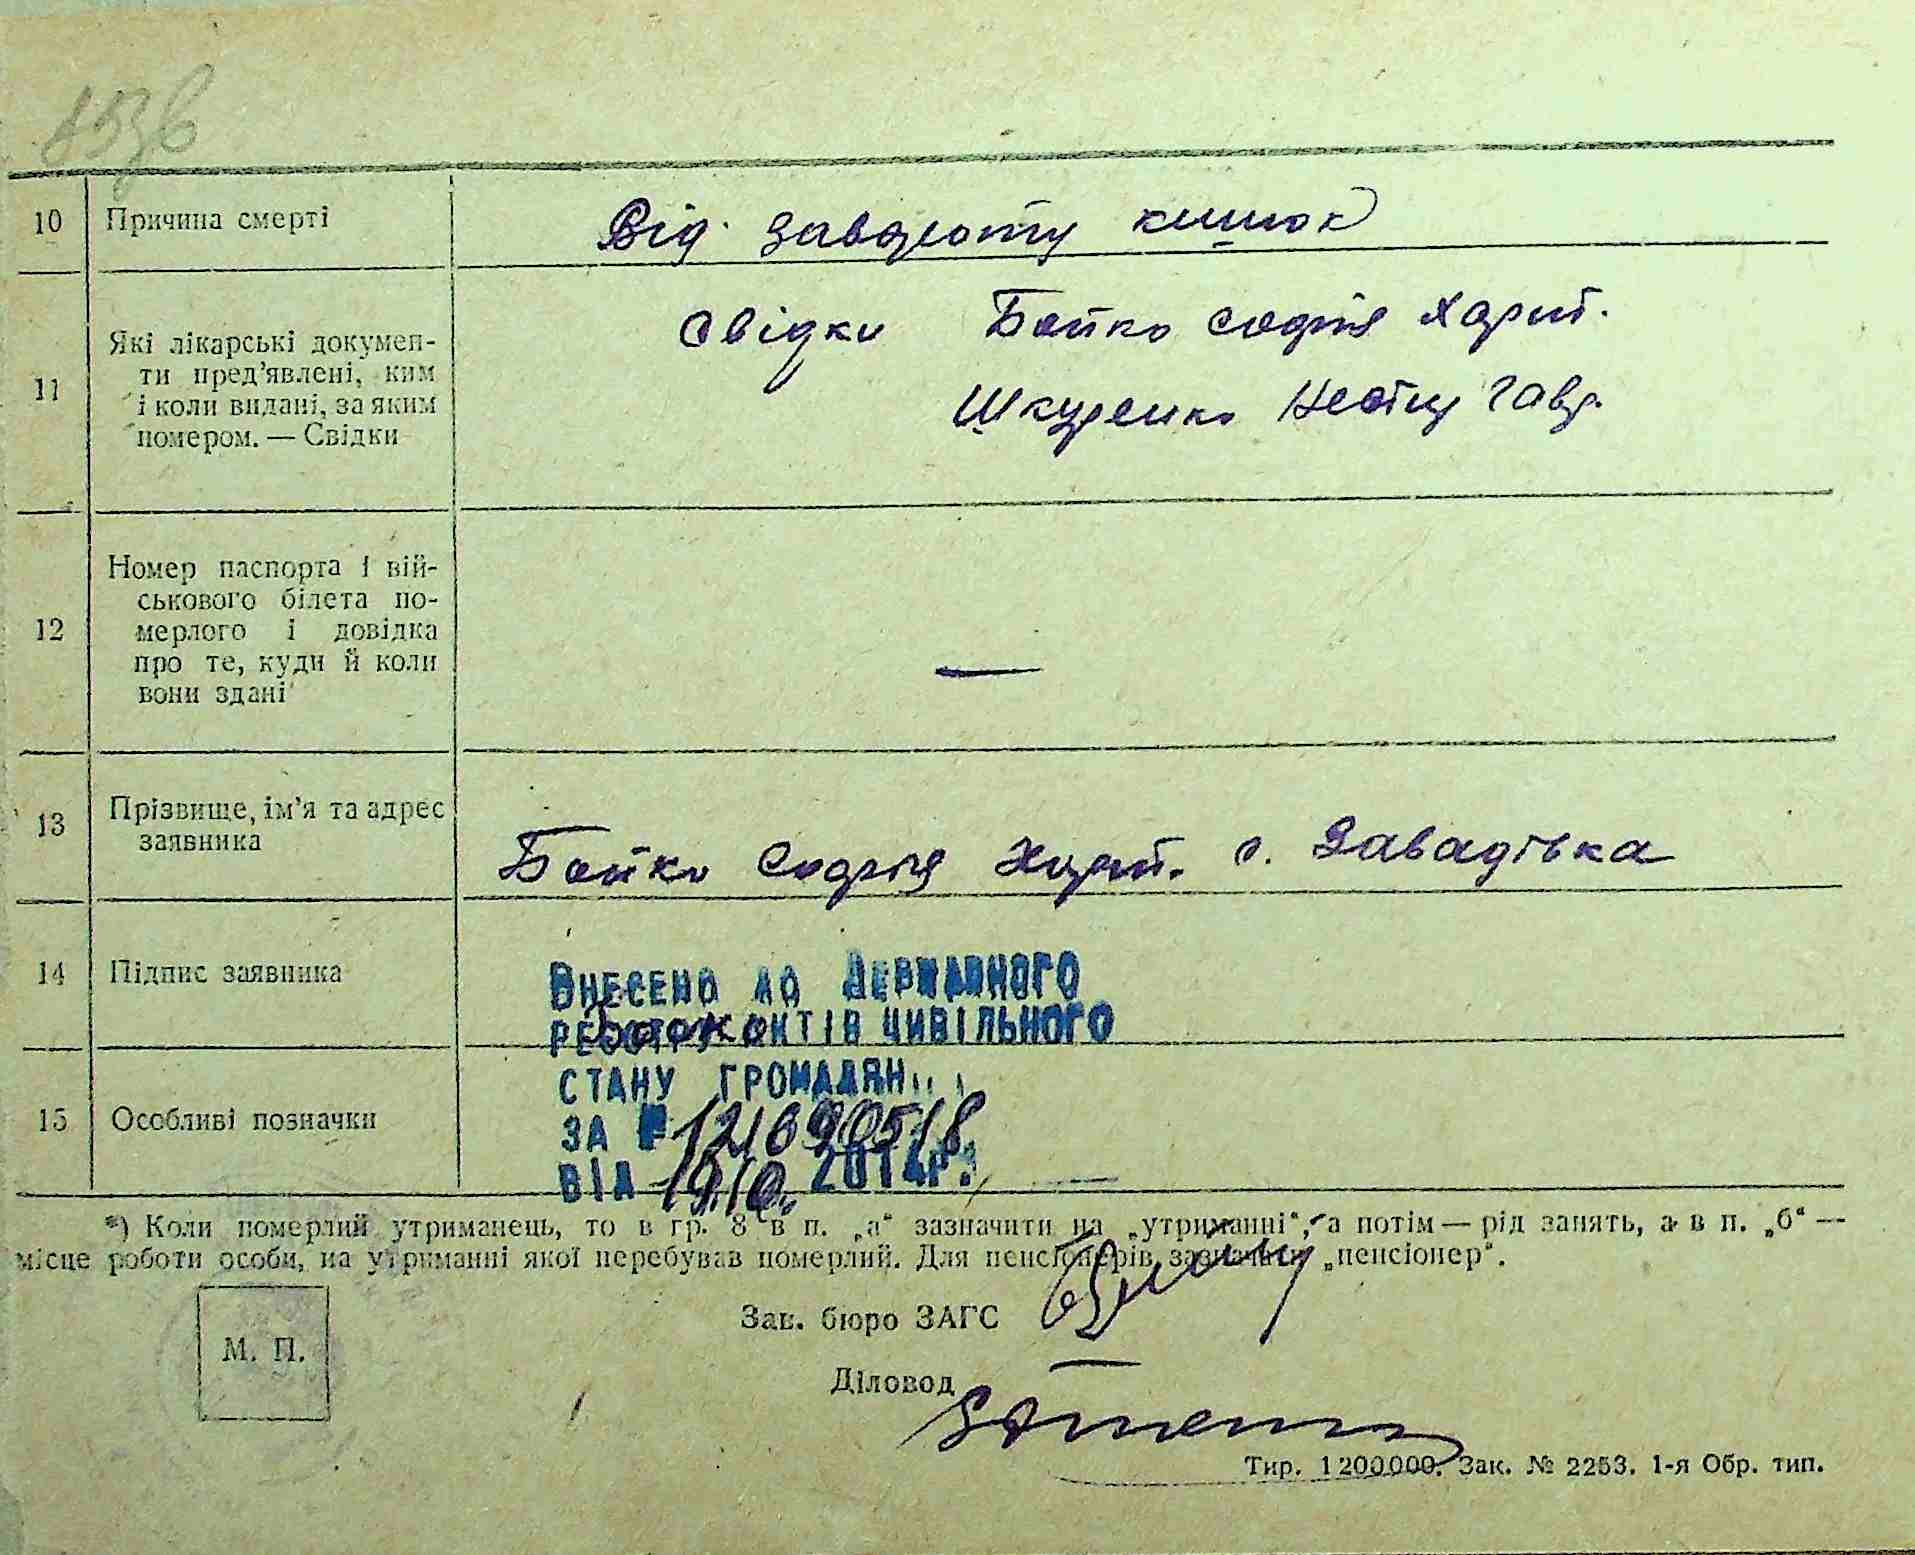 10 Причина смерті Від заворот­у кишок
11 Які лікарські докумен-
ти пред'явлені, ким
і коли видані, за яким
номером. — Свідки
Свідки Бойко Софія Харит.
Шкуренко Гавр.
12 Номер паспорта і вій-
ськового білета по-
мерлого і довідка
про те, куди й коли
вони здані —
13 Прізвище, ім'я та адрес
заявника
Бойко Софія Харит. с. Завадівка
14 Підпис заявника
Бойко
ВНЕСЕНО ДО ДЕРЖАВНОГО
РЕЄСТРУ АКТІВ ЦИВІЛЬНОГО
СТАНУ ГРОМАДЯН
15 Особливі позначки
ЗА №
ВІД 2014Р.
*) Коли померлий утриманець, то в гр. 8 в п. „а“ зазначити на „утриманні“, а потім — рід занять, а в п. „б“ —
місце роботи особи, на утриманні якої перебував померлий. Для пенсіонерів зазначити „пенсіонер“.
Зав. бюро ЗАГС
М. П.
Діловод
Тир. 1200000. Зак. № 2253. 1-я Обр. тип.